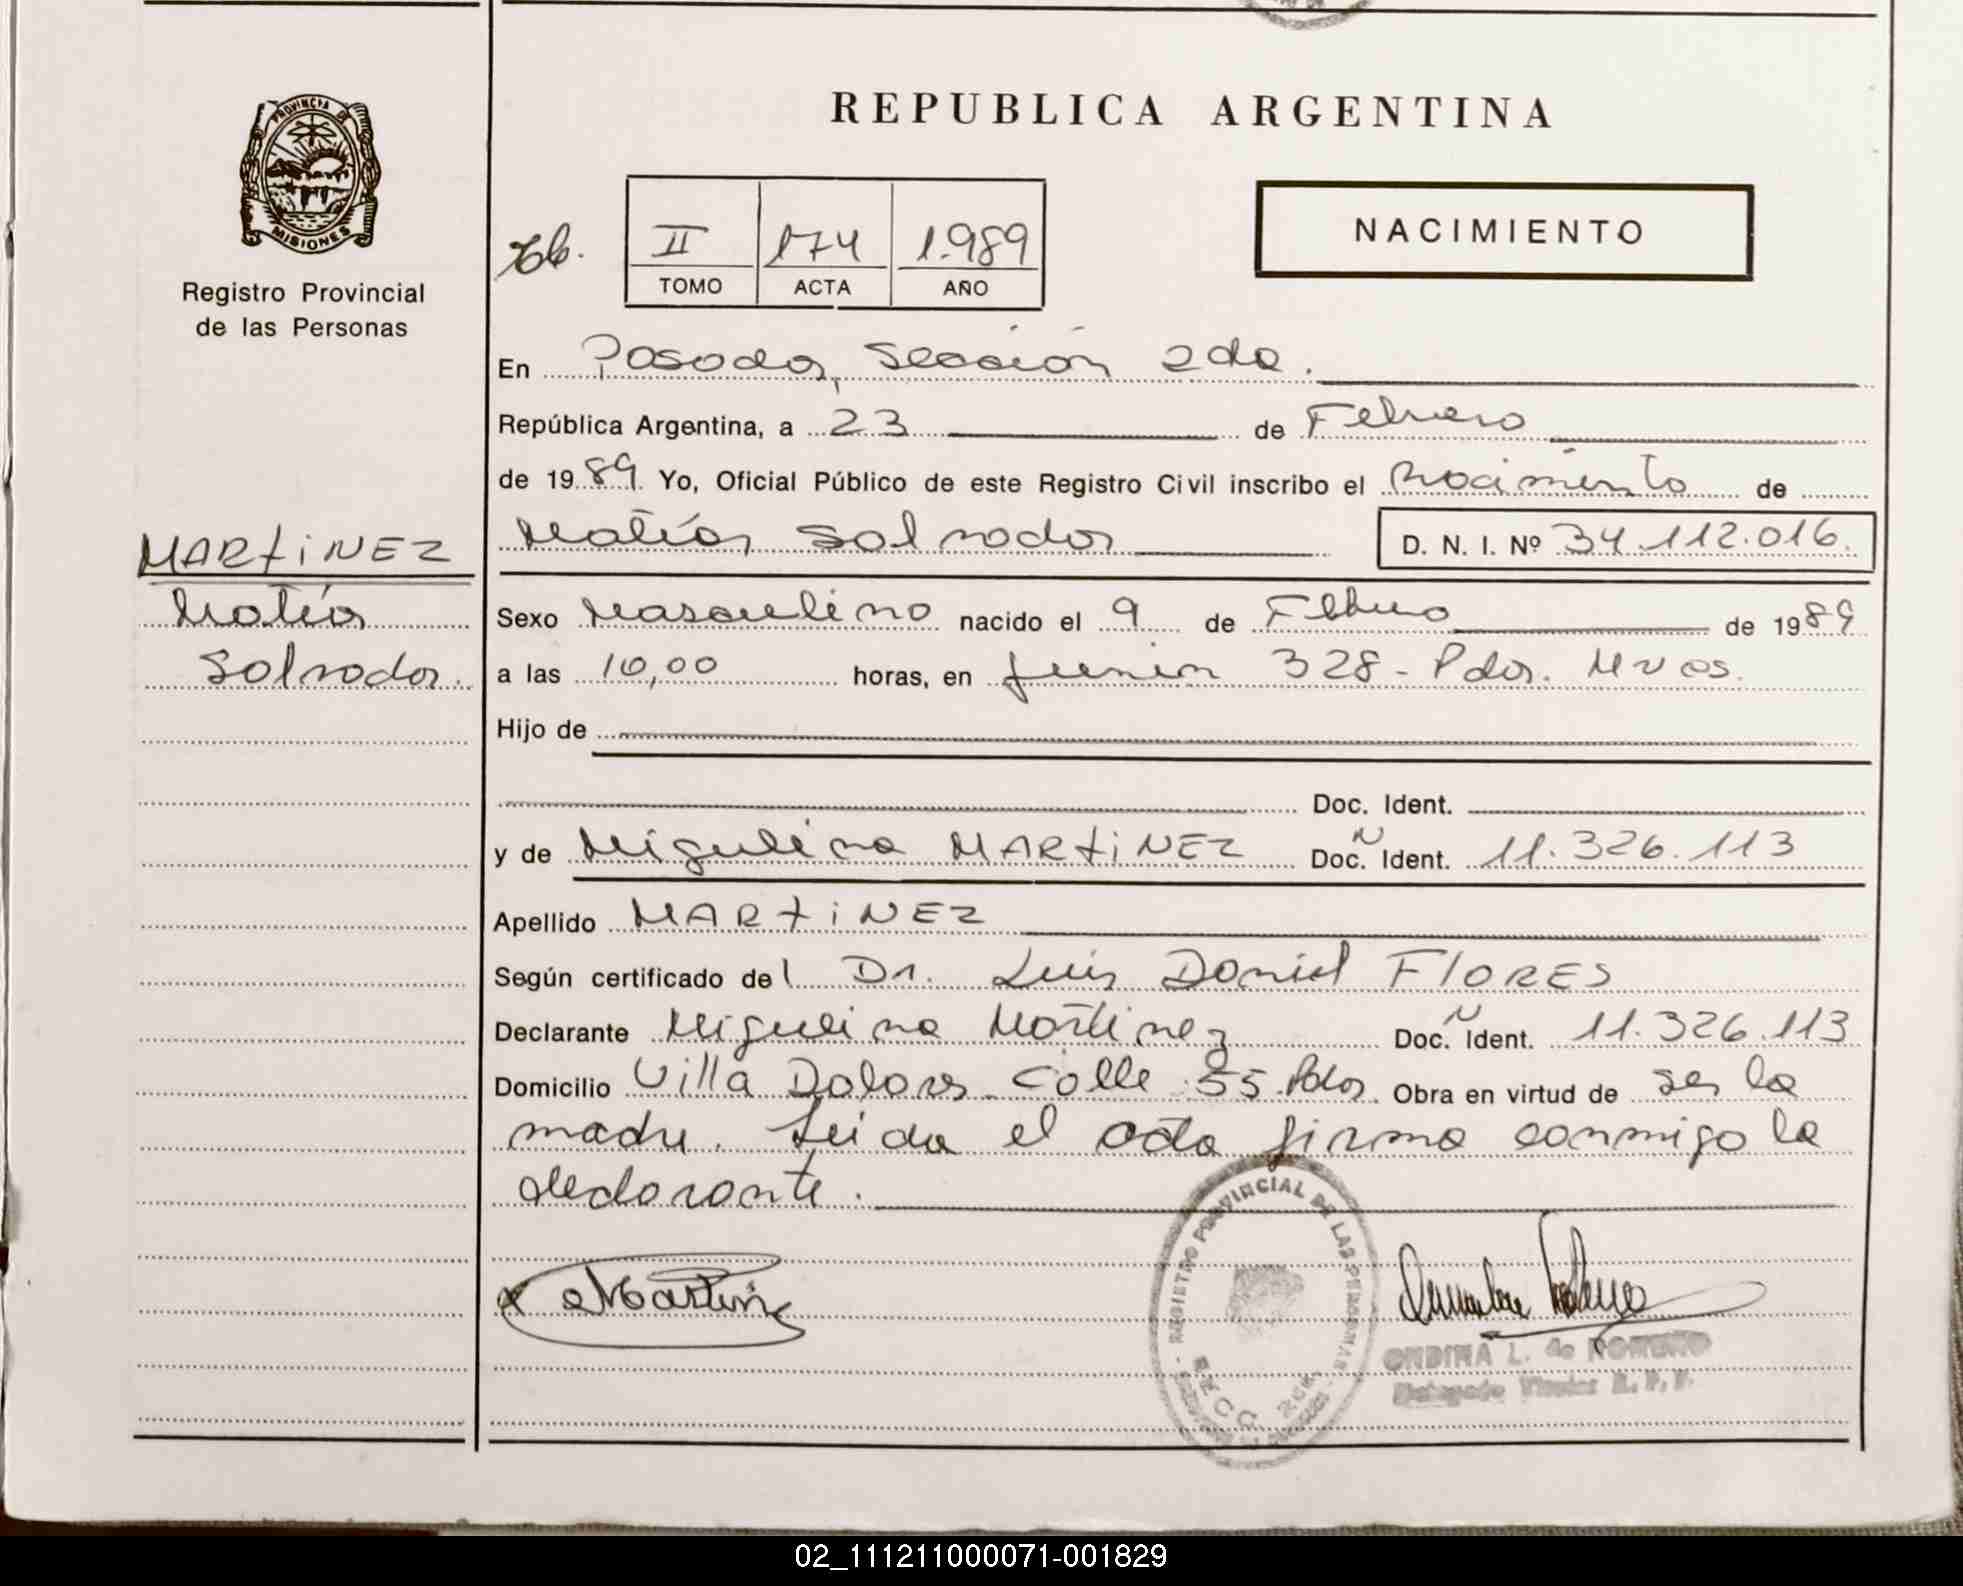 REPUBLICA ARGENTINA
PROVINCIA DE MISIONES
Registro Provincial
de las Personas
II 174 1.989
TOMO ACTA AÑO
NACIMIENTO
En Posadas, Sección 2da.
República Argentina, a 23 de Febrero
de 1989 Yo, Oficial Público de este Registro Civil inscribo el nacimiento de
Matías Salvador D. N. I. Nº 34.112.016.
MARTINEZ
Matías
Salvador.
Sexo Masculino nacido el 9 de Febrero de 1989
a las 10,00 horas, en Junín 328 - Pdas. Mnes.
Hijo de
Doc. Ident.
y de Miguelina MARTINEZ Doc. Ident. 11.326.113
Apellido MARTINEZ
Según certificado del Dr. Luis Daniel FLORES
Declarante Miguelina Martinez Doc. Ident. 11.326.113
Domicilio Villa Dolores - Calle 55 Pdas. Obra en virtud de ser la
madre. Leida el acta firma conmigo la
declarante.
REGISTRO PROVINCIAL DE LAS PERSONAS
ONDINA L. de ROMERO
02_111211000071-001829